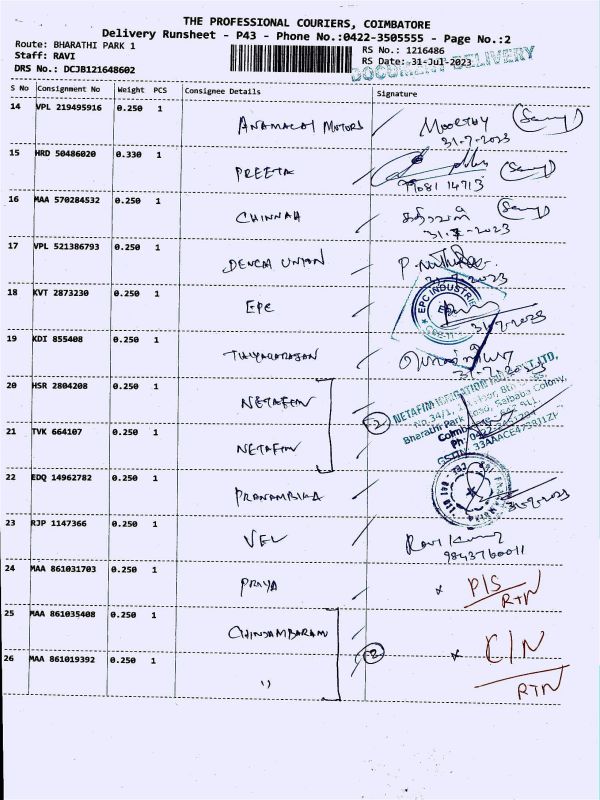 THE PROFESSIONAL COURIERS, COIMBATORE
Delivery Runsheet - P43 - Phone No.:0422-3505555 - Page No.:2
Route: BHARATHI PARK 1
RS No.: 1216486
Staff: RAVI
RS Date: 31-Jul-2023
DRS No.: DCJB121648602
DOCUMENT DELIVERY
S No Consignment No Weight PCS Consignee Details Signature
14 VPL 219495916 0.250 1 ANAMALAI MOTORS MOORTHY
31-7-2023
15 HRD 50486020 0.330 1 PREETA
16 MAA 570284532 0.250 1 CHINNAH
31-7-2023
17 VPL 521386793 0.250 1 DENCA UNION
31-7-2023
18 KVT 2873230 0.250 1 EPC EPC INDUSTRI
31-7-2023
19 KDI 855408 0.250 1 THIYAGARAJAN
31-7-2023
20 HSR 2804208 0.250 1 NETAFIM
21 TVK 664107 0.250 1 NETAFIM
22 EDQ 14962782 0.250 1 PRANAMBIKA
31-7-2023
23 RJP 1147366 0.250 1 VEL Ravi Kumar
9843760011
24 MAA 861031703 0.250 1 PRIYA × P/S
RTN
25 MAA 861035408 0.250 1 CHINDAMBARAM × C/N
26 MAA 861019392 0.250 1 ''
RTN